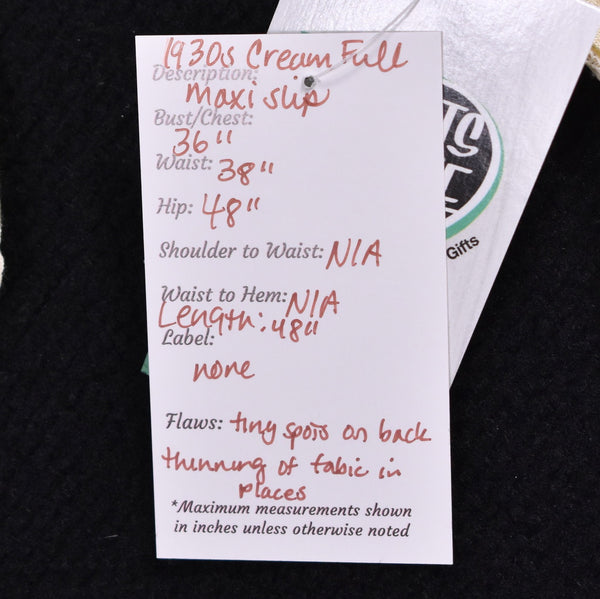 1930s Cream Full
Description:
Maxi slip
Bust/Chest:
36"
Waist: 38"
Hip: 48"
Shoulder to Waist: N/A
Waist to Hem: N/A
Length: 48"
Label:
none
Flaws: tiny spots on back
thinning of fabic in
places
*Maximum measurements shown
in inches unless otherwise noted
Gifts